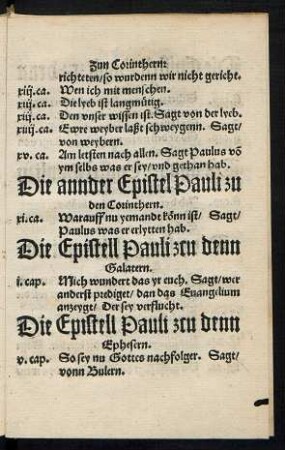 Zun Corinthern:
richteten/so wurdenn wir nicht gericht.
xiij.ca. Wen ich mit menschen.
xiij.ca. Die lyeb ist langmůtig.
xiij.ca. Den vnser wissen ist. Sagt von der lyeb.
xiiij.ca. Ewre weyber laßt schweygenn. Sagt/
von weybern.
xv. ca. Am letsten nach allen. Sagt Paulus võ
ym selbs was er sey/vnd gethan hab.
Die annder Epistel Pauli zu
den Corinthern.
xi. ca. Warauff nu yemandt könn ist/ Sagt/
Paulus was er erlytten hab.
Die Epistell Pauli zcu denn
Galatern.
i. cap. Mich wundert das yr euch. Sagt/wer
anderst prediget/ dan das Euangelium
anzeygt/ Der sey verflucht.
Die Epistell Pauli zcu denn
Ephesern.
v. cap. So sey nu Gottes nachfolger. Sagt/
vonn Bulern.